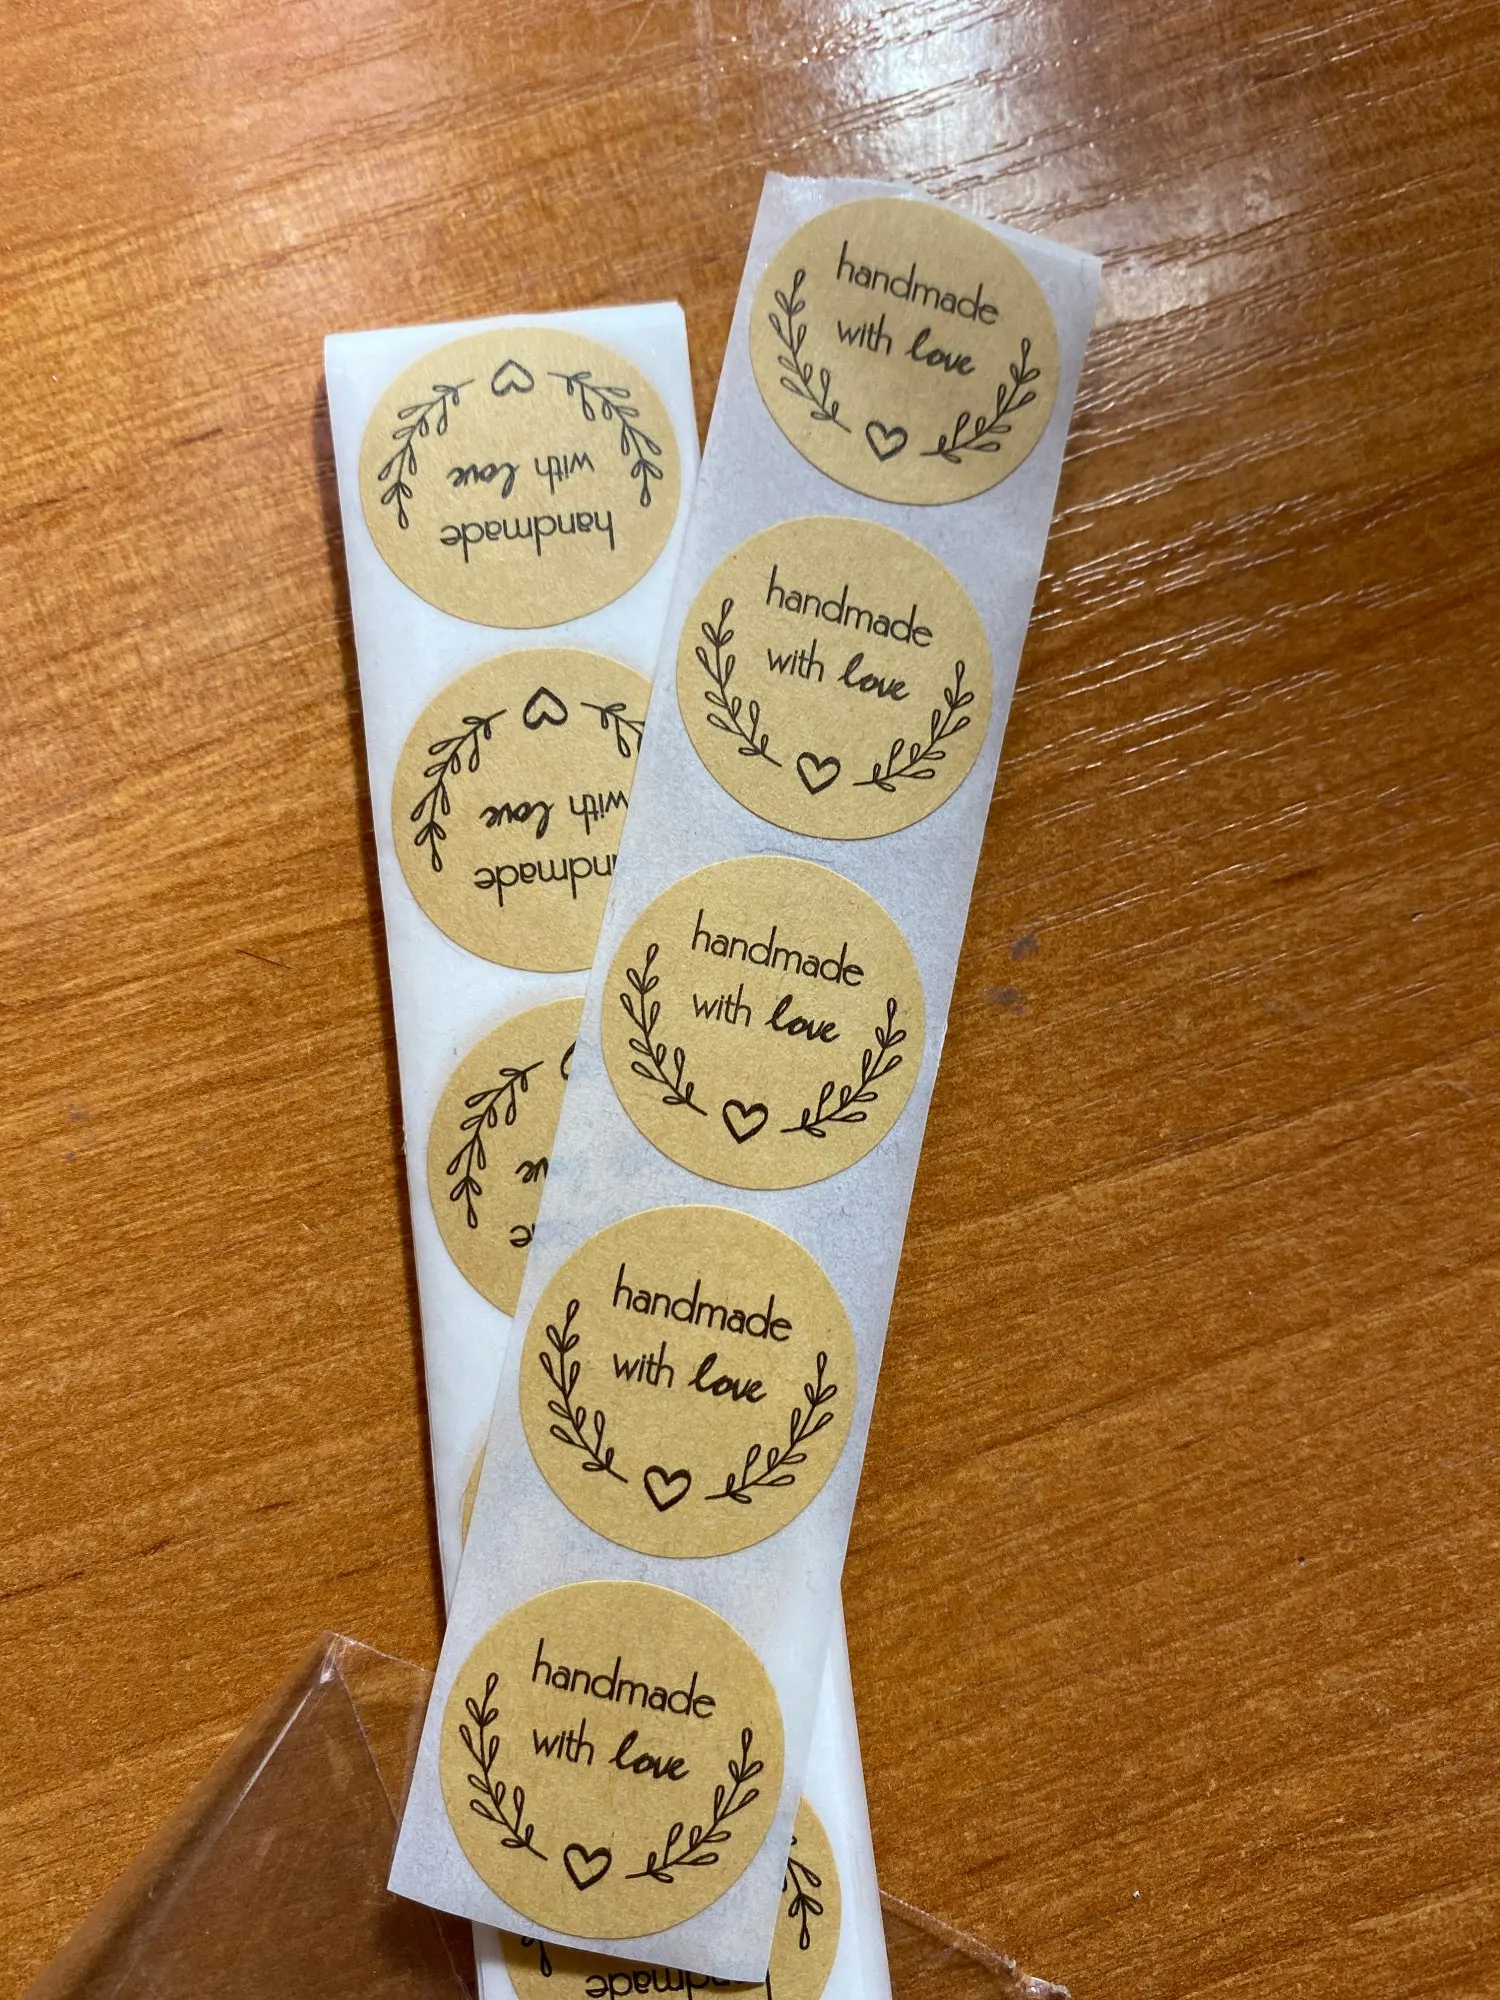 handmade
with love
handmade
with love
handmade
with love
handmade
with love
handmade
with love
handmade
with love
handmade
with love
handmade